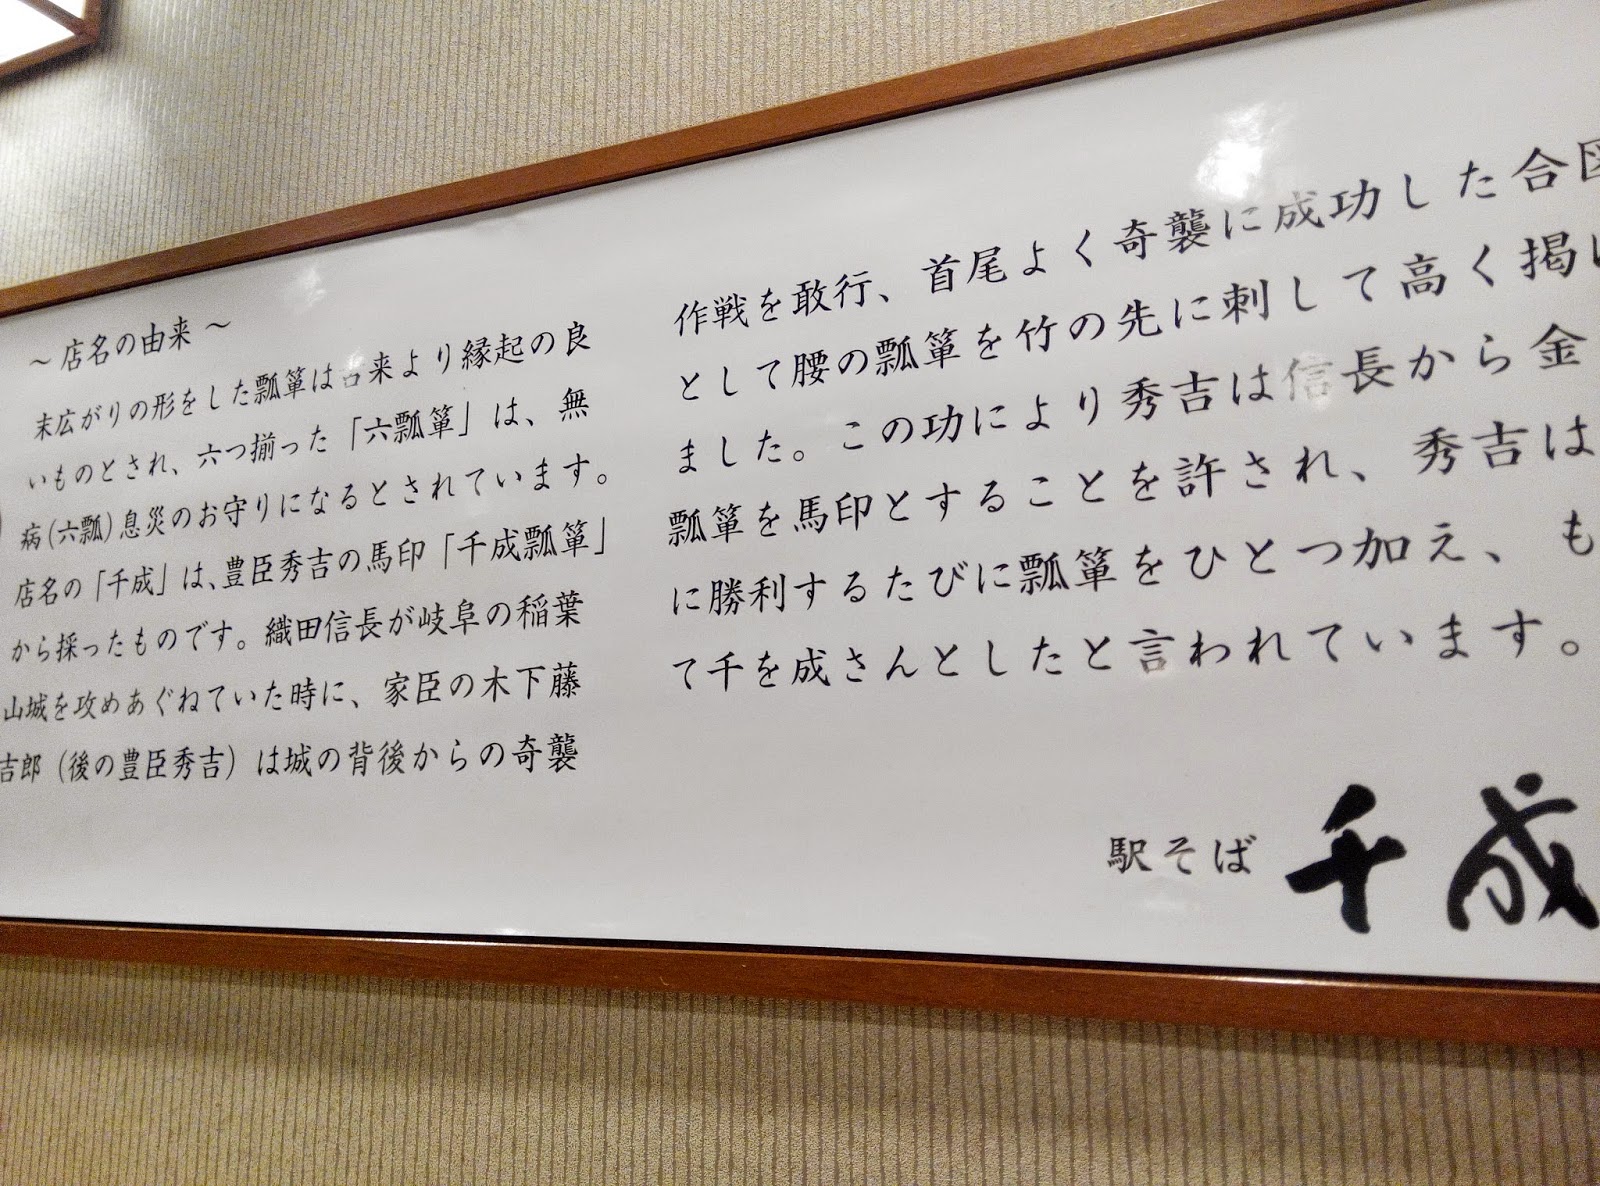 ～店名の由来～
末広がりの形をした瓢箪は古来より縁起の良
いものとされ、六つ揃った「六瓢箪」は、無
病(六瓢)息災のお守りになるとされています。
店名の「千成」は、豊臣秀吉の馬印「千成瓢箪」
から採ったものです。織田信長が岐阜の稲葉
山城を攻めあぐねていた時に、家臣の木下藤
吉郎（後の豊臣秀吉）は城の背後からの奇襲
作戦を敢行、首尾よく奇襲に成功した合図
として腰の瓢箪を竹の先に刺して高く掲げ
ました。この功により秀吉は信長から金
瓢箪を馬印とすることを許され、秀吉は
に勝利するたびに瓢箪をひとつ加え、も
て千を成さんとしたと言われています。
駅そば 千成